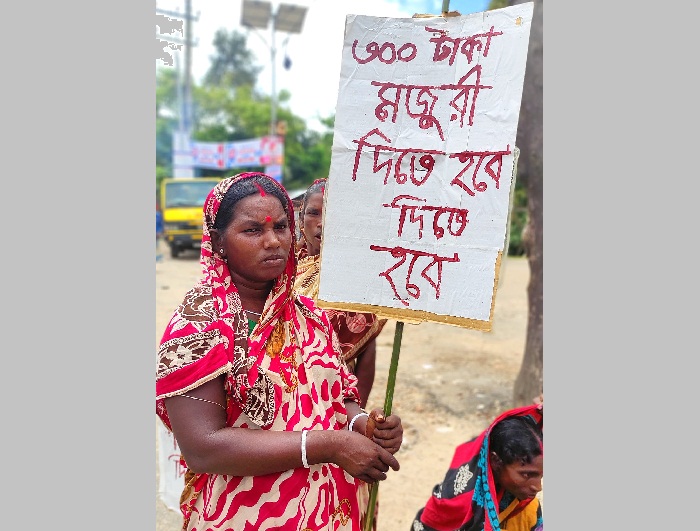 ৩০০ টাকা
মজুরী
দিতে হবে
দিতে
হবে